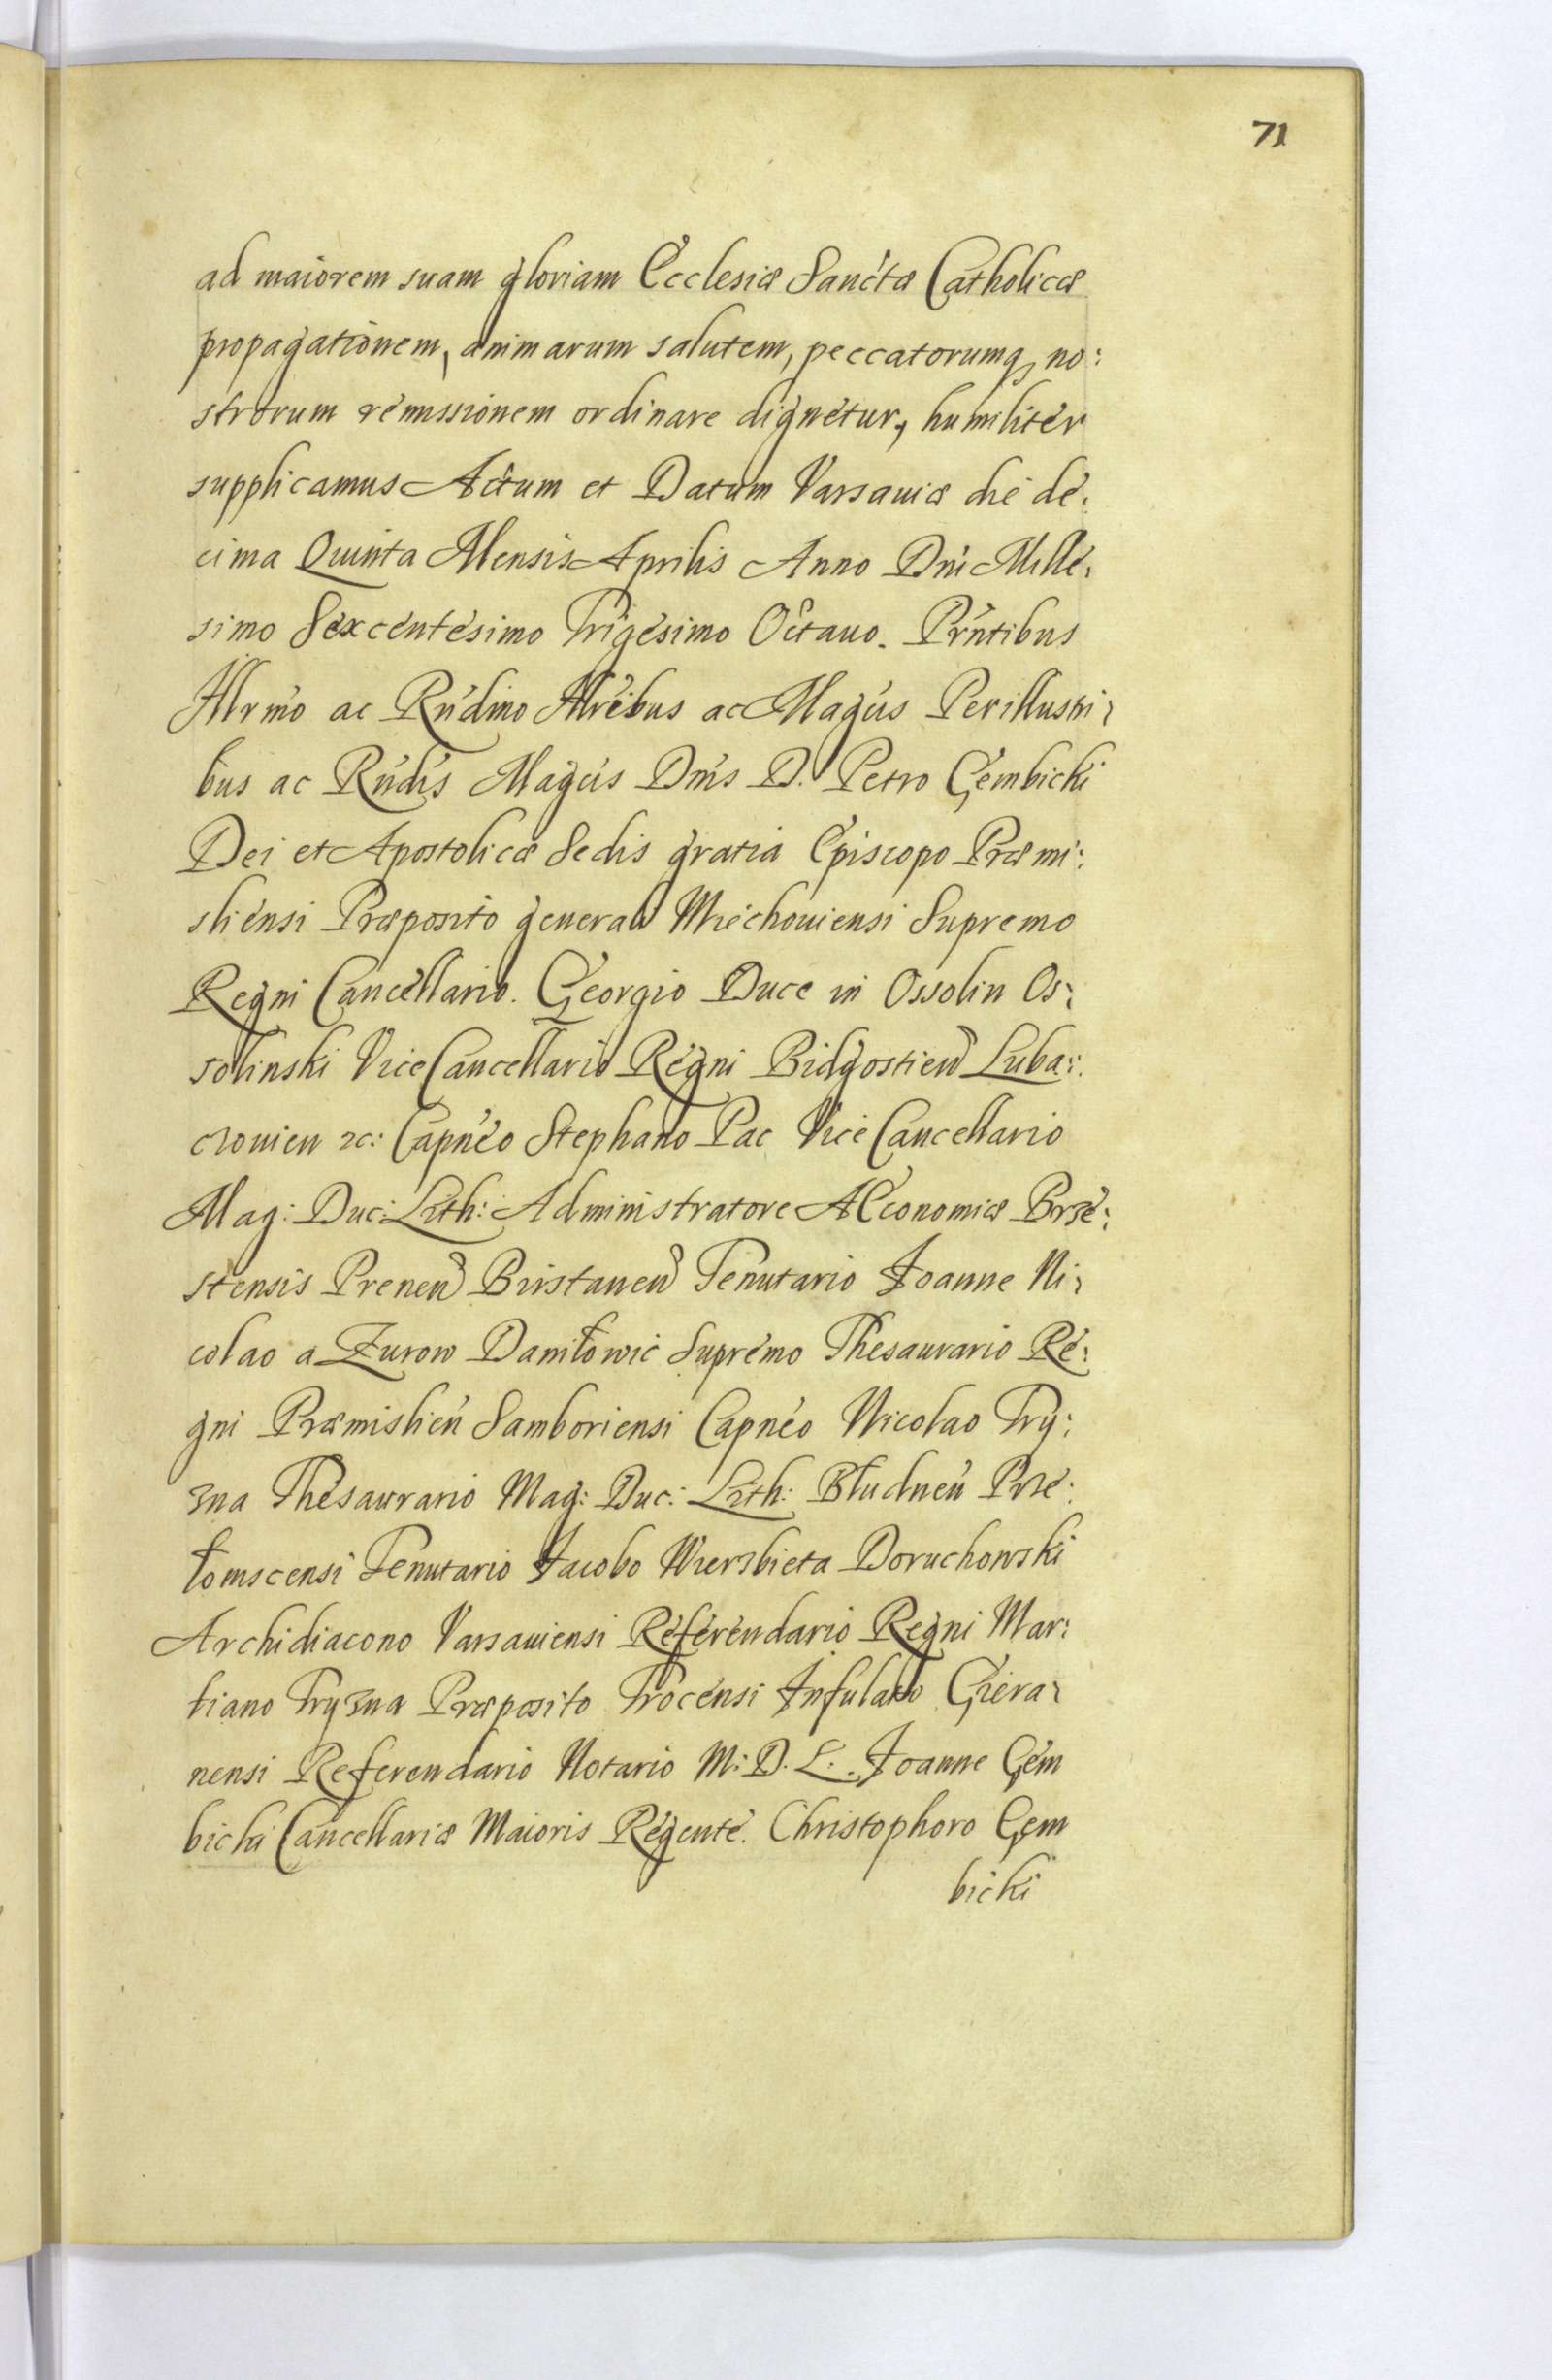 71
ad maiorem suam gloriam Ecclesiæ Sanctæ Catholicæ
propagationem, animarum salutem, peccatorumq, no:
strorum remissionem ordinare dignetur, humiliter
supplicamus Actum et Datum Varsauiæ die de:
cima Quinta Mensis Aprilis Anno Dni Mille:
simo Sexcentesimo Trigesimo Octauo. Prntibus
Illrmo ac Rndmo Illrebus ac Magcis Perillustri:
bus ac Rndis Magcis Dnis D. Petro Gembicki
Dei et Apostolicæ Sedis gratia Episcopo Præmi:
sliensi Præposito generali Miechouiensi Supremo
Regni Cancellario. Georgio Duce in Ossolin Os:
solinski ViceCancellario Regni Bidgostien Luba:
czouien &c: Capneo Stephano Pac ViceCancellario
Mag: Duc: Lith: Administratore AEconomiæ Brze:
stensis Prenen Birstanen Tenutario Joanne Ni:
colao a Zurow Daniłowic Supremo Thesaurario Re:
gni Præmislien Samboriensi Capneo Nicolao Try:
zna Thesaurario Mag: Duc: Lith: Błudnen Prze:
łomscensi Tenutario Jacobo Wierzbieta Doruchowski
Archidiacono Varsauiensi Referendario Regni Mar:
tiano Tryzna Præposito Trocensi Infulato Giera:
nensi Referendario Notario M: D. L. Joanne Gem
bicki Cancellariæ Maioris Regente. Christophoro Gem
bicki